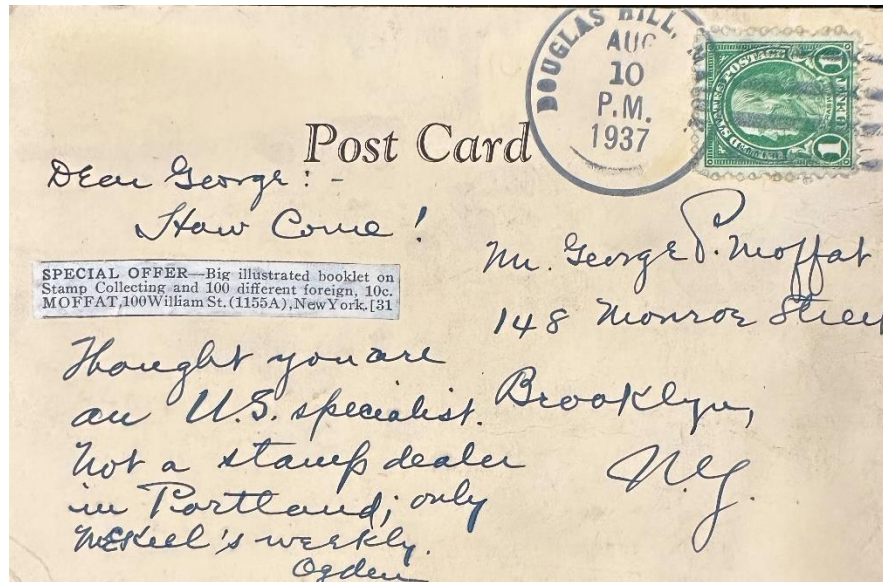 DOUGLAS HILL,
AUG
10
P.M.
1937
UNITED STATES POSTAGE
1 1
Post Card
Dear George: -
How Come!
SPECIAL OFFER—Big illustrated booklet on
Stamp Collecting and 100 different foreign, 10c.
MOFFAT, 100 William St. (1155A), New York. [31
Thought you are
an U.S. specialist.
Not a stamp dealer
in Portland; only
McKeel's weekly.
Ogden
Mr. George P. Moffat
148 Monroe Street
Brooklyn,
N.Y.